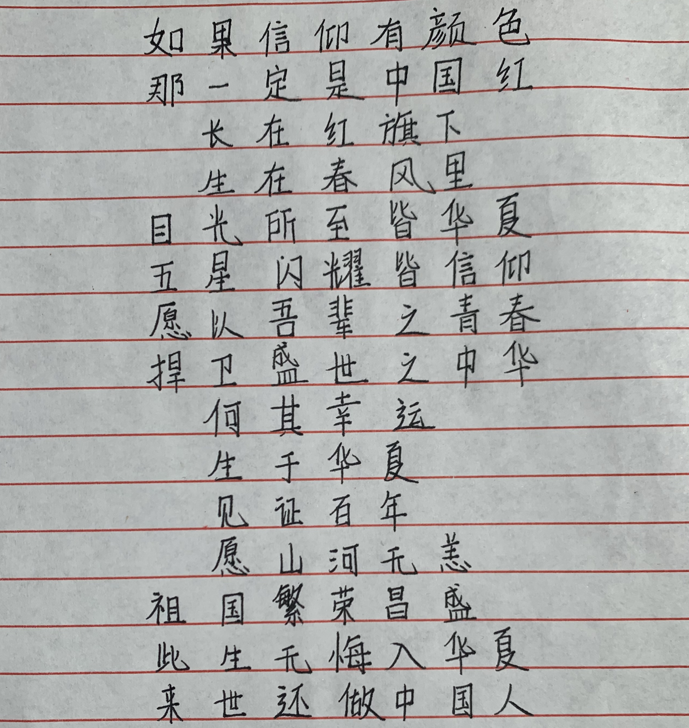 如果信仰有颜色
那一定是中国红
长在红旗下
生在春风里
目光所至皆华夏
五星闪耀皆信仰
愿以吾辈之青春
捍卫盛世之中华
何其幸运
生于华夏
见证百年
愿山河无恙
祖国繁荣昌盛
此生无悔入华夏
来世还做中国人